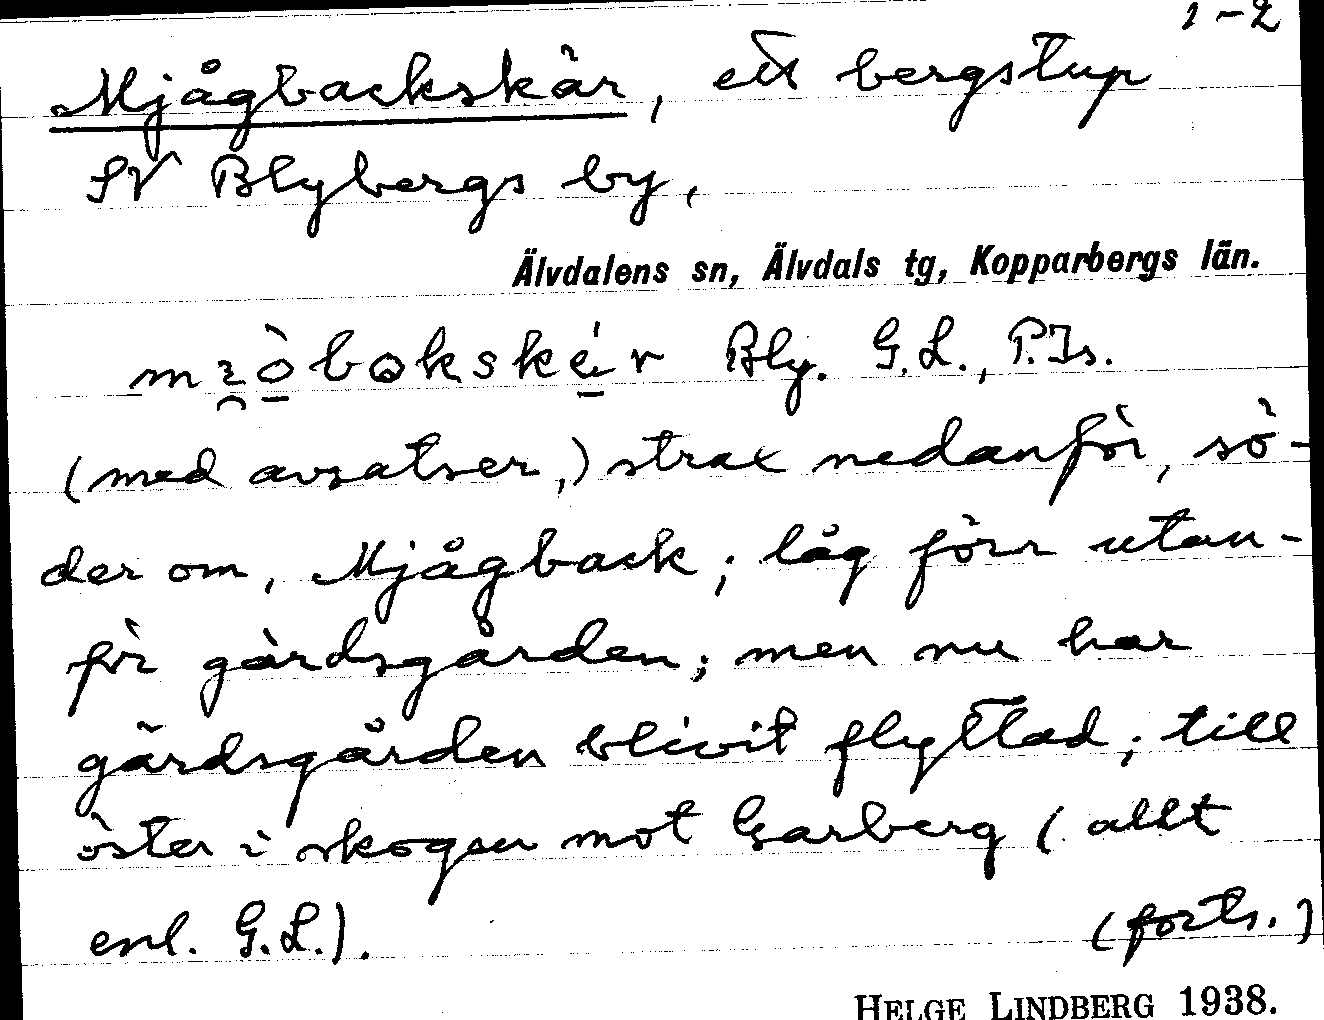 1-2
Mjågbackskär, ett bergstup
SV Blybergs by,
Älvdalens sn, Älvdals tg, Kopparbergs län.
Bly. G.L., P.Is.
(med avsatser,) strax nedanför, sö-
der om, Mjågback; låg förr utan-
för gärdsgården; men nu har
gärdsgården blivit flyttad; till
öster i skogen mot Garberg (allt
enl. G.L.).
(forts.)
HELGE LINDBERG 1938.